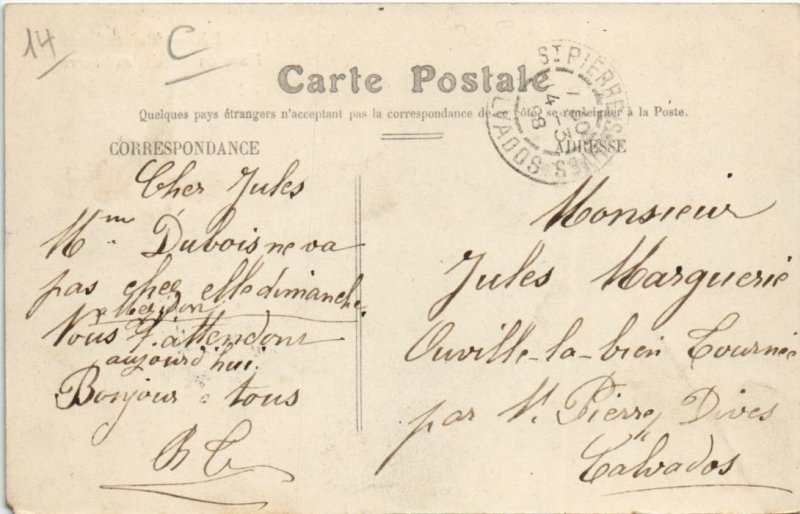 14
C
Carte Postale
Quelques pays étrangers n'acceptant pas la correspondance de ce côté, se renseigner à la Poste.
CORRESPONDANCE
ADRESSE
ST PIERRE-SUR-DIVES
CALVADOS
Cher Jules
Mme Dubois ne va
pas cher elle dimanche
a Mezidon
Vous l'attendont
aujourd'hui
Bonjour a tous
Monsieur
Jules Marguerie
Ouville-la-bien Tournée
par St Pierre Dives
Calvados